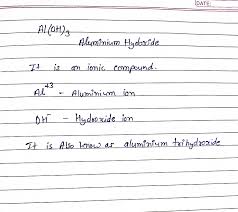 DATE:
Al(OH)3
Aluminium Hydroxide
It is an ionic compound.
Al+3 - Aluminium ion
OH- - Hydroxide ion
It is Also know as aluminium trihydroxide